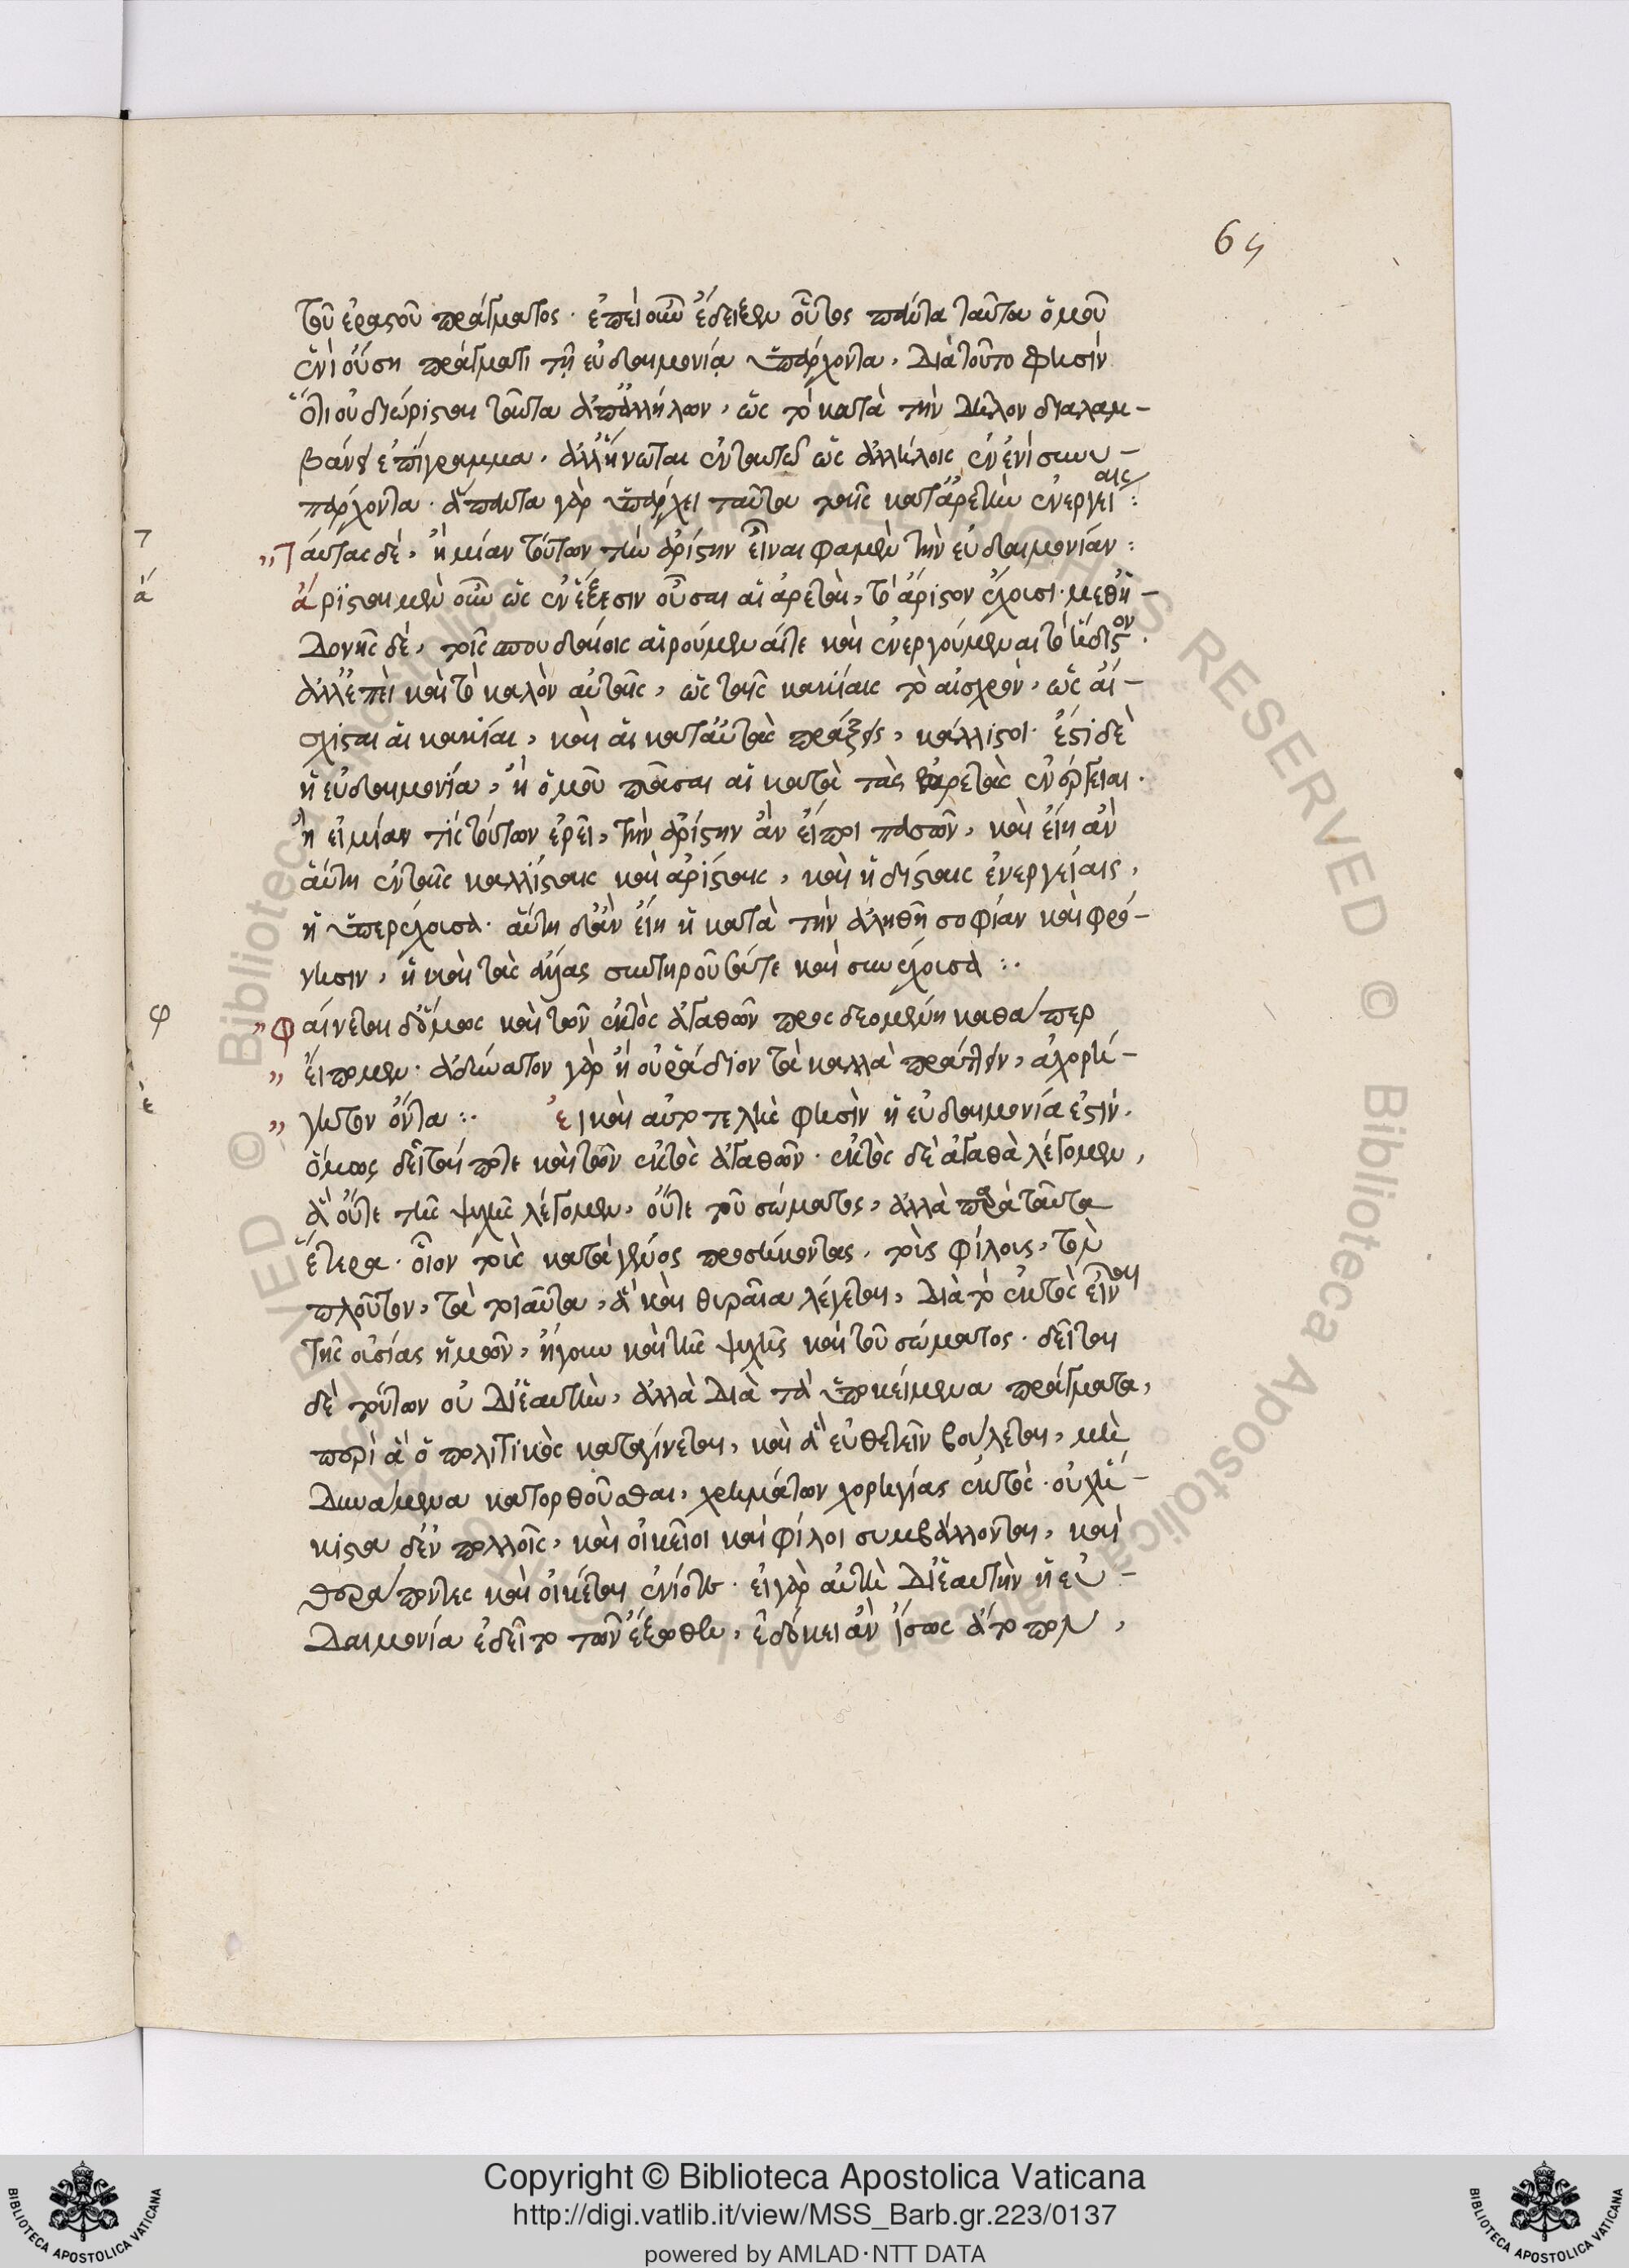 64
τοῦ ἐραστοῦ πράγματος· ἐπεὶ οὖν ἔδειξεν οὗτος πάντα ταῦτα ὁμοῦ
ἑνὶ οὔση πράγματι τῇ εὐδαιμονίᾳ ὑπάρχοντα, διὰ τοῦτο φησὶν
ὅτι οὐ διώρισται ταῦτα ἀπ' ἀλλήλων, ὡς τὸ κατὰ τὴν Δῆλον διαλαμ-
βάνει ἐπίγραμμα, ἀλλ' ἥνωται ἐν ταυτῷ ὡς ἀλλήλοις ἐν ἑνὶ συνυ-
πάρχοντα· ἅπαντα γὰρ ὑπάρχει ταῦτα ταῖς κατ' ἀρετὴν ἐνεργείαις:
τ
" Ταύτας δὲ, ἢ μίαν τούτων τὴν ἀρίστην εἶναι φαμὲν τὴν εὐδαιμονίαν:
ἀ
ἄρισται μὲν οὖν ὡς ἐν ἕξεσιν οὖσαι αἱ ἀρεταὶ, τὸ ἄριστον ἔχουσι· μεθ' ἡ-
δονῆς δὲ, τοῖς σπουδαίοις αἱρούμεναί τε καὶ ἐνεργούμεναι τὸ ἥδιστον·
ἀλλ' ἐπεὶ καὶ τὸ καλὸν αὐταῖς, ὡς ταῖς κακίαις τὸ αἰσχρὸν, ὡς αἴ-
σχισται αἱ κακίαι, καὶ αἱ κατ' αὐτὰς πράξεις, κάλλισται· ἔστι δὲ
ἡ εὐδαιμονία, ἢ ὁμοῦ πᾶσαι αἱ κατὰ τὰς ἀρετὰς ἐνέργειαι·
ἢ εἰ μίαν τὶς τούτων ἐρεῖ, τὴν ἀρίστην ἂν εἴποι πασῶν, καὶ εἴη ἂν
αὕτη ἐν ταῖς καλλίσταις καὶ ἀρίσταις, καὶ ἡδίσταις ἐνεργείαις,
ἡ ὑπερέχουσα· αὕτη δ' ἂν εἴη ἡ κατὰ τὴν ἀληθῆ σοφίαν καὶ φρό-
νησιν, ἡ καὶ τὰς ἄλλας συντηροῦσά τε καὶ συνέχουσα :·
φ
" Φαίνεται δ' ὅμως καὶ τῶν ἐκτὸς ἀγαθῶν προσδεομένη καθάπερ
" εἴπομεν· ἀδύνατον γὰρ ἢ οὐ ῥάδιον τὰ καλλὰ πράττειν, ἀχορή-
ἐ
" γητον ὄντα :· εἰ καὶ αὐτοτελὴς φησὶν ἡ εὐδαιμονία ἐστὶν.
ὅμως δεῖταί ποτε καὶ τῶν ἐκτὸς ἀγαθῶν· ἐκτὸς δὲ ἀγαθὰ λέγομεν,
ἃ οὔτε τῆς ψυχῆς λέγομεν, οὔτε τοῦ σώματος, ἀλλὰ παρὰ ταῦτα
ἕτερα· οἷον τοὺς κατὰ γένος προσήκοντας, τοὺς φίλους, τὸν
πλοῦτον, τὰ τοιαῦτα, ἃ καὶ θυραῖα λέγεται, διὰ τὸ ἐκτὸς εἶναι
τῆς οὐσίας ἡμῶν, ἤγουν καὶ τῆς ψυχῆς καὶ τοῦ σώματος· δεῖται
δὲ τούτων οὐ δι' ἑαυτὴν, ἀλλὰ διὰ τὰ ὑποκείμενα πράγματα,
περὶ ἃ ὁ πολιτικὸς καταγίνεται, καὶ ἃ εὐθετεῖν βούλεται, μὴ
δυνάμενα κατορθοῦσθαι, χρημάτων χορηγίας ἐκτὸς· οὐχ ἥ-
κιστα δ' ἐν πολλοῖς, καὶ οἰκεῖοι καὶ φίλοι συμβάλλονται, καὶ
θεράποντες καὶ οἰκέται ἐνίοτε· εἰ γὰρ αὐτὴ δι' ἑαυτὴν ἡ εὐ-
δαιμονία ἐδεῖτο τῶν ἔξωθεν, ἐδόκει ἂν ἴσως ἄτοπον,
Copyright © Biblioteca Apostolica Vaticana
http://digi.vatlib.it/view/MSS_Barb.gr.223/0137
powered by AMLAD·NTT DATA